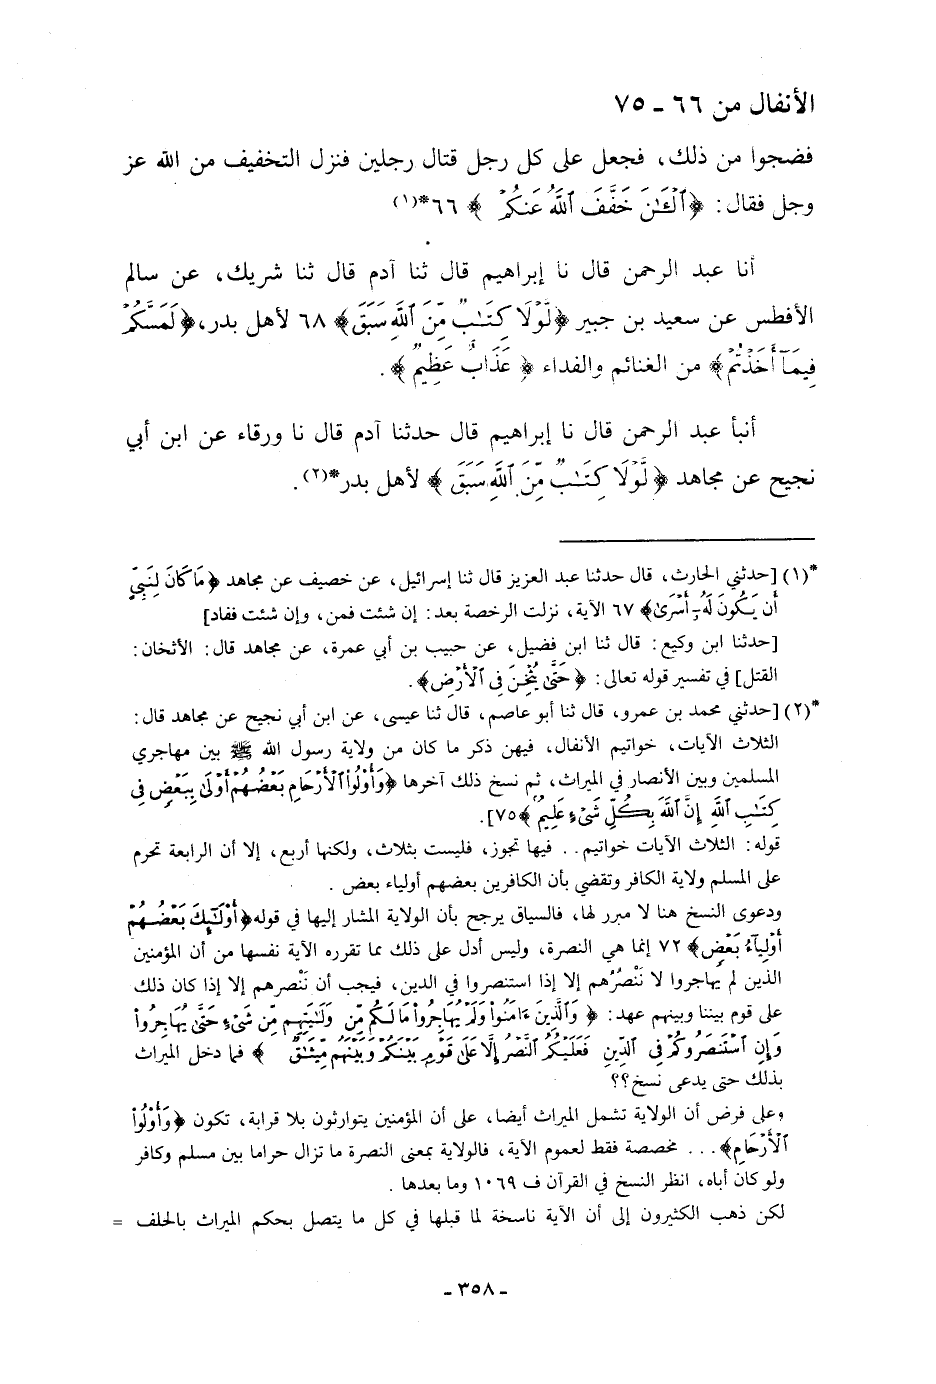 الأنفال من ٦٦ ـ ٧٥
فضجوا من ذلك، فجعل على كل رجل قتال رجلين فنزل التخفيف من الله عز
وجل فقال: ﴿ٱلْـَٰٔنَ خَفَّفَ ٱللَّهُ عَنكُمْ﴾ ٦٦*(١)
أنا عبد الرحمن قال نا إبراهيم قال ثنا آدم قال ثنا شريك، عن سالم
الأفطس عن سعيد بن جبير ﴿لَّوْلَا كِتَٰبٌ مِّنَ ٱللَّهِ سَبَقَ﴾ ٦٨ لأهل بدر، ﴿لَمَسَّكُمْ
فِيمَآ أَخَذْتُمْ﴾ من الغنائم والفداء ﴿عَذَابٌ عَظِيمٌ﴾.
أنبأ عبد الرحمن قال نا إبراهيم قال حدثنا آدم قال نا ورقاء عن ابن أبي
نجيح عن مجاهد ﴿لَّوْلَا كِتَٰبٌ مِّنَ ٱللَّهِ سَبَقَ﴾ لأهل بدر*(٢).
*(١) [حدثني الحارث، قال حدثنا عبد العزيز قال ثنا إسرائيل، عن خصيف عن مجاهد ﴿مَا كَانَ لِنَبِيٍّ
أَن يَكُونَ لَهُۥٓ أَسْرَىٰ﴾ ٦٧ الآية، نزلت الرخصة بعد: إن شئت فمن، وإن شئت ففاد]
[حدثنا ابن وكيع: قال ثنا ابن فضيل، عن حبيب بن أبي عمرة، عن مجاهد قال: الأثخان:
القتل] في تفسير قوله تعالى: ﴿حَتَّىٰ يُثْخِنَ فِى ٱلْأَرْضِ﴾.
*(٢) [حدثني محمد بن عمرو، قال ثنا أبو عاصم، قال ثنا عيسى، عن ابن أبي نجيح عن مجاهد قال:
الثلاث الآيات، خواتيم الأنفال، فيهن ذكر ما كان من ولاية رسول الله ﷺ بين مهاجري
المسلمين وبين الأنصار في الميراث، ثم نسخ ذلك آخرها ﴿وَأُو۟لُوا۟ ٱلْأَرْحَامِ بَعْضُهُمْ أَوْلَىٰ بِبَعْضٍ فِى
كِتَٰبِ ٱللَّهِ إِنَّ ٱللَّهَ بِكُلِّ شَىْءٍ عَلِيمٌۢ﴾ ٧٥].
قوله: الثلاث الآيات خواتيم.. فيها تجوز، فليست بثلاث، ولكنها أربع، إلا أن الرابعة تحرم
على المسلم ولاية الكافر وتقضي بأن الكافرين بعضهم أولياء بعض.
ودعوى النسخ هنا لا مبرر لها، فالسياق يرجح بأن الولاية المشار إليها في قوله ﴿أُو۟لَٰٓئِكَ بَعْضُهُمْ
أَوْلِيَآءُ بَعْضٍ﴾ ٧٢ إنما هي النصرة، وليس أدل على ذلك مما تقرره الآية نفسها من أن المؤمنين
الذين لم يهاجروا لا نَنْصُرُهم إلا إذا استنصروا في الدين، فيجب أن نَنْصرهم إلا إذا كان ذلك
على قوم بيننا وبينهم عهد: ﴿وَٱلَّذِينَ ءَامَنُوا۟ وَلَمْ يُهَاجِرُوا۟ مَا لَكُم مِّن وَلَٰيَتِهِم مِّن شَىْءٍ حَتَّىٰ يُهَاجِرُوا۟
وَإِنِ ٱسْتَنصَرُوكُمْ فِى ٱلدِّينِ فَعَلَيْكُمُ ٱلنَّصْرُ إِلَّا عَلَىٰ قَوْمٍۭ بَيْنَكُمْ وَبَيْنَهُم مِّيثَٰقٌ﴾ فما دخل الميراث
بذلك حتى يدعى نسخ؟؟
وعلى فرض أن الولاية تشمل الميراث أيضا، على أن المؤمنين يتوارثون بلا قرابة، تكون ﴿وَأُو۟لُوا۟
ٱلْأَرْحَامِ﴾... مخصصة فقط لعموم الآية، فالولاية بمعنى النصرة ما تزال حراما بين مسلم وكافر
ولو كان أباه، انظر النسخ في القرآن ف ١٠٦٩ وما بعدها.
لكن ذهب الكثيرون إلى أن الآية ناسخة لما قبلها في كل ما يتصل بحكم الميراث بالحلف =
ـ ٣٥٨ ـ